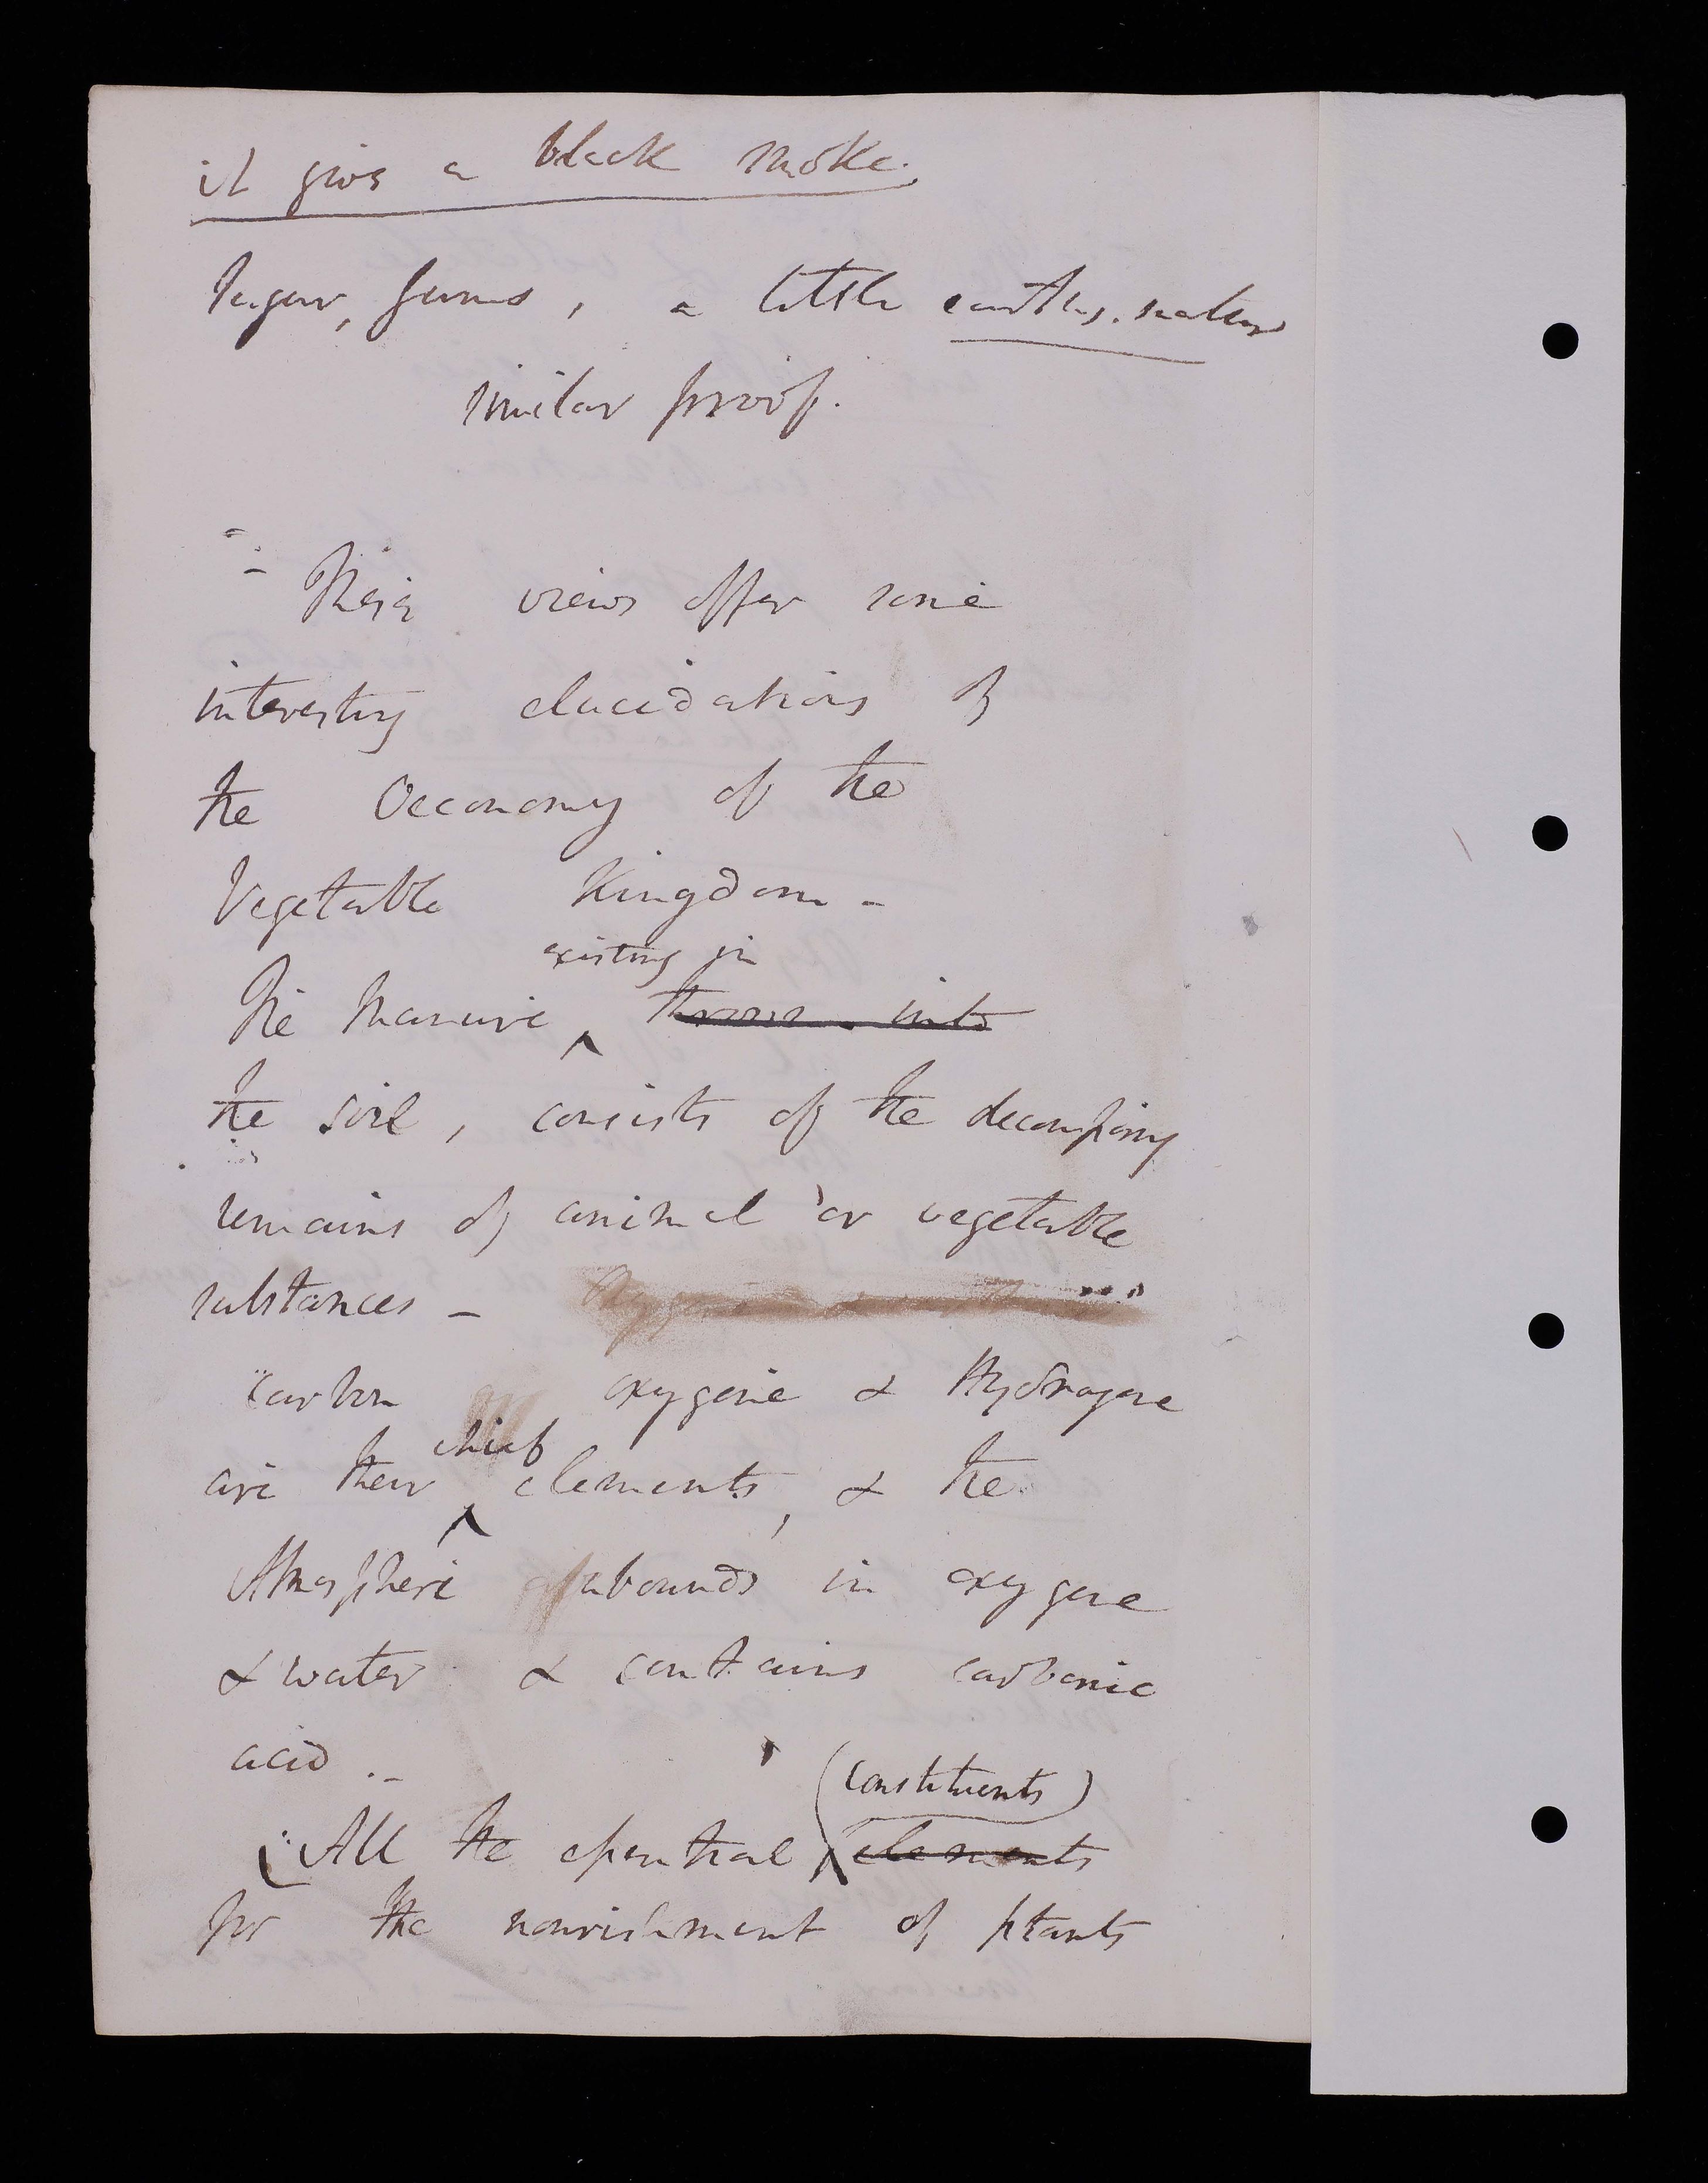 it gives a black smoke.
Sugar, Gums, a little earthy matter
similar proof.
- These views offer some
interesting elucidations of
the Oeconomy of the
Vegetable Kingdom -
existing in
The Manure ^ thrown into
the soil, consists of the decomposing
remains of animal or vegetable
substances -
Carbon oxygene & Hydrogene
chief
are their ^ elements, & the
Atmosphere abounds in oxygene
& water & contains carbonic
acid. -
(constituents)
All the essential elements
for the nourishment of plants